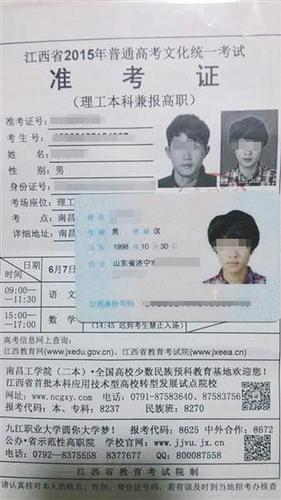 江西省2015年普通高考文化统一考试
准考证
(理工本科兼报高职)
准考证号:
考生号:
姓名:
性别: 男
身份证号:
考场座位: 理工
考点: 南昌
详细地址: 南昌
姓名
性别 男 民族 汉
出生 1998年10月30日
山东省济宁
公民身份号码
日期 6月7
09:00—
—11:30
语文
15:00—
—17:00
数
(14:45 迟到考生禁止入场)
信息网上查询:
江西教育网(www.jxedu.gov.cn)、江西省教育考试院(www.jxeea.cn)
南昌工学院(二本)·全国高校少数民族预科教育基地欢迎您!
江西省首批本科应用技术型高校转型发展试点院校
网址: www.ncgxy.com 电话: 0791-87583640、87583756
报考代码: 本、专科: 8237 民族班: 8270
九江职业大学圆你大学梦! 报考代码: 8625 中外合作: 8672
公办·省示范性高职院 学校官网: www.jjvu.jx.cn
电话: 0792-8375558 8377677 QQ: 800087558
江西省教育考试院制
请认真核对本人的姓名、性别、身份证号码等信息。若有误及时到当地招考办核查